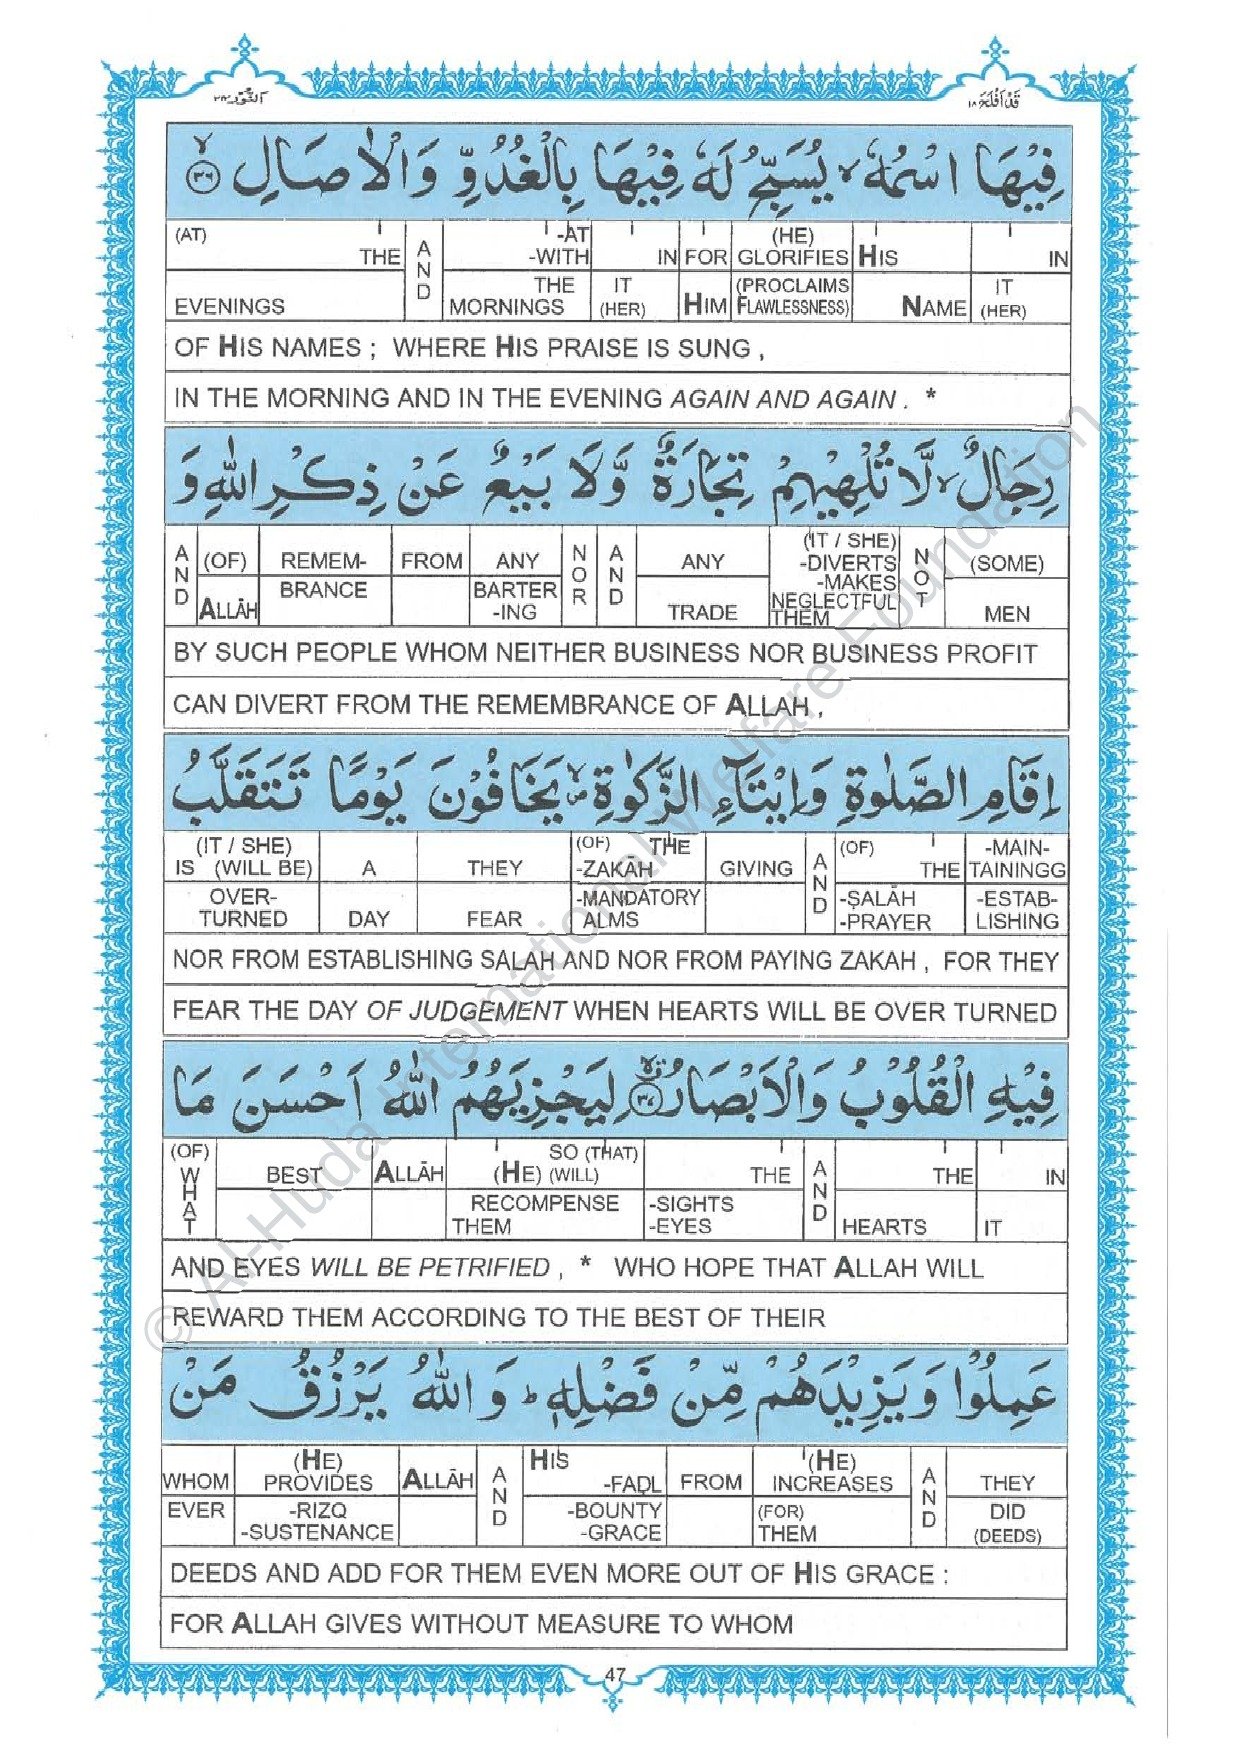 النور ٢٤
قد افلح ١٨
فِيْهَا اسْمُهٗ ۙ يُسَبِّحُ لَهٗ فِيْهَا بِالْغُدُوِّ وَالْاٰصَالِ ۙ﴿٣٦﴾
(AT) THE EVENINGS | AND | -AT -WITH THE MORNINGS | IN IT (HER) | FOR HIM | (HE) GLORIFIES (PROCLAIMS FLAWLESSNESS) | HIS NAME | IN IT (HER)
OF HIS NAMES ; WHERE HIS PRAISE IS SUNG ,
IN THE MORNING AND IN THE EVENING AGAIN AND AGAIN . *
رِجَالٌ ۙ لَّا تُلْهِيْهِمْ تِجَارَةٌ وَّلَا بَيْعٌ عَنْ ذِكْرِ اللّٰهِ وَ
AND | (OF) ALLĀH | REMEM- BRANCE | FROM | ANY BARTER -ING | NOR | AND | ANY TRADE | (IT / SHE) -DIVERTS -MAKES NEGLECTFUL THEM | NOT | (SOME) MEN
BY SUCH PEOPLE WHOM NEITHER BUSINESS NOR BUSINESS PROFIT
CAN DIVERT FROM THE REMEMBRANCE OF ALLAH ,
اِقَامِ الصَّلٰوةِ وَاِيْتَآءِ الزَّكٰوةِ ۙ يَخَافُوْنَ يَوْمًا تَتَقَلَّبُ
(IT / SHE) IS (WILL BE) OVER- TURNED | A DAY | THEY FEAR | (OF) THE -ZAKĀH -MANDATORY ALMS | GIVING | AND | (OF) THE -ṢALĀH -PRAYER | -MAIN- TAININGG -ESTAB- LISHING
NOR FROM ESTABLISHING SALAH AND NOR FROM PAYING ZAKAH , FOR THEY
FEAR THE DAY OF JUDGEMENT WHEN HEARTS WILL BE OVER TURNED
فِيْهِ الْقُلُوْبُ وَالْاَبْصَارُ ۙ﴿٣٧﴾ لِيَجْزِيَهُمُ اللّٰهُ اَحْسَنَ مَا
(OF) WHAT | BEST | ALLĀH | SO (THAT) (HE) (WILL) RECOMPENSE THEM | THE -SIGHTS -EYES | AND | THE HEARTS | IN IT
AND EYES WILL BE PETRIFIED , * WHO HOPE THAT ALLAH WILL
REWARD THEM ACCORDING TO THE BEST OF THEIR
عَمِلُوْا وَيَزِيْدَهُمْ مِّنْ فَضْلِهٖ ؕ وَاللّٰهُ يَرْزُقُ مَنْ
WHOM EVER | (HE) PROVIDES -RIZQ -SUSTENANCE | ALLĀH | AND | HIS -FAḌL -BOUNTY -GRACE | FROM | (HE) INCREASES (FOR) THEM | AND | THEY DID (DEEDS)
DEEDS AND ADD FOR THEM EVEN MORE OUT OF HIS GRACE :
FOR ALLAH GIVES WITHOUT MEASURE TO WHOM
47
© Al-Huda International Welfare Foundation